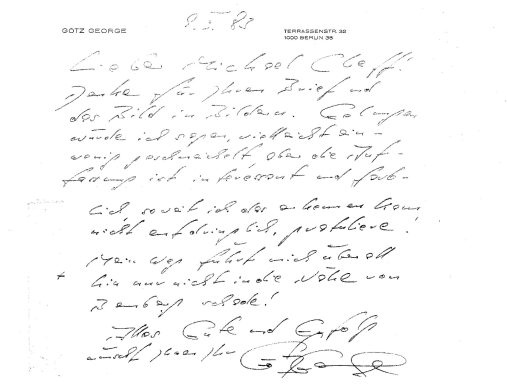 GÖTZ GEORGE
8.5.83
TERRASSENSTR. 32
1000 BERLIN 38
Lieber Michael Cheff!
Danke für Ihren Brief und
das Bild in Bildern. Gelungen
würde ich sagen, vielleicht ein-
wenig geschmeichelt, aber die Auf-
fassung ist interessant und farb-
lich, soweit ich das erkennen kann
nicht aufdringlich, gratuliere!
Mein Weg führt mich überall
hin nur nicht in die Nähe von
Bamberg schade!
Alles Gute und Erfolg
wünscht Ihnen Ihr